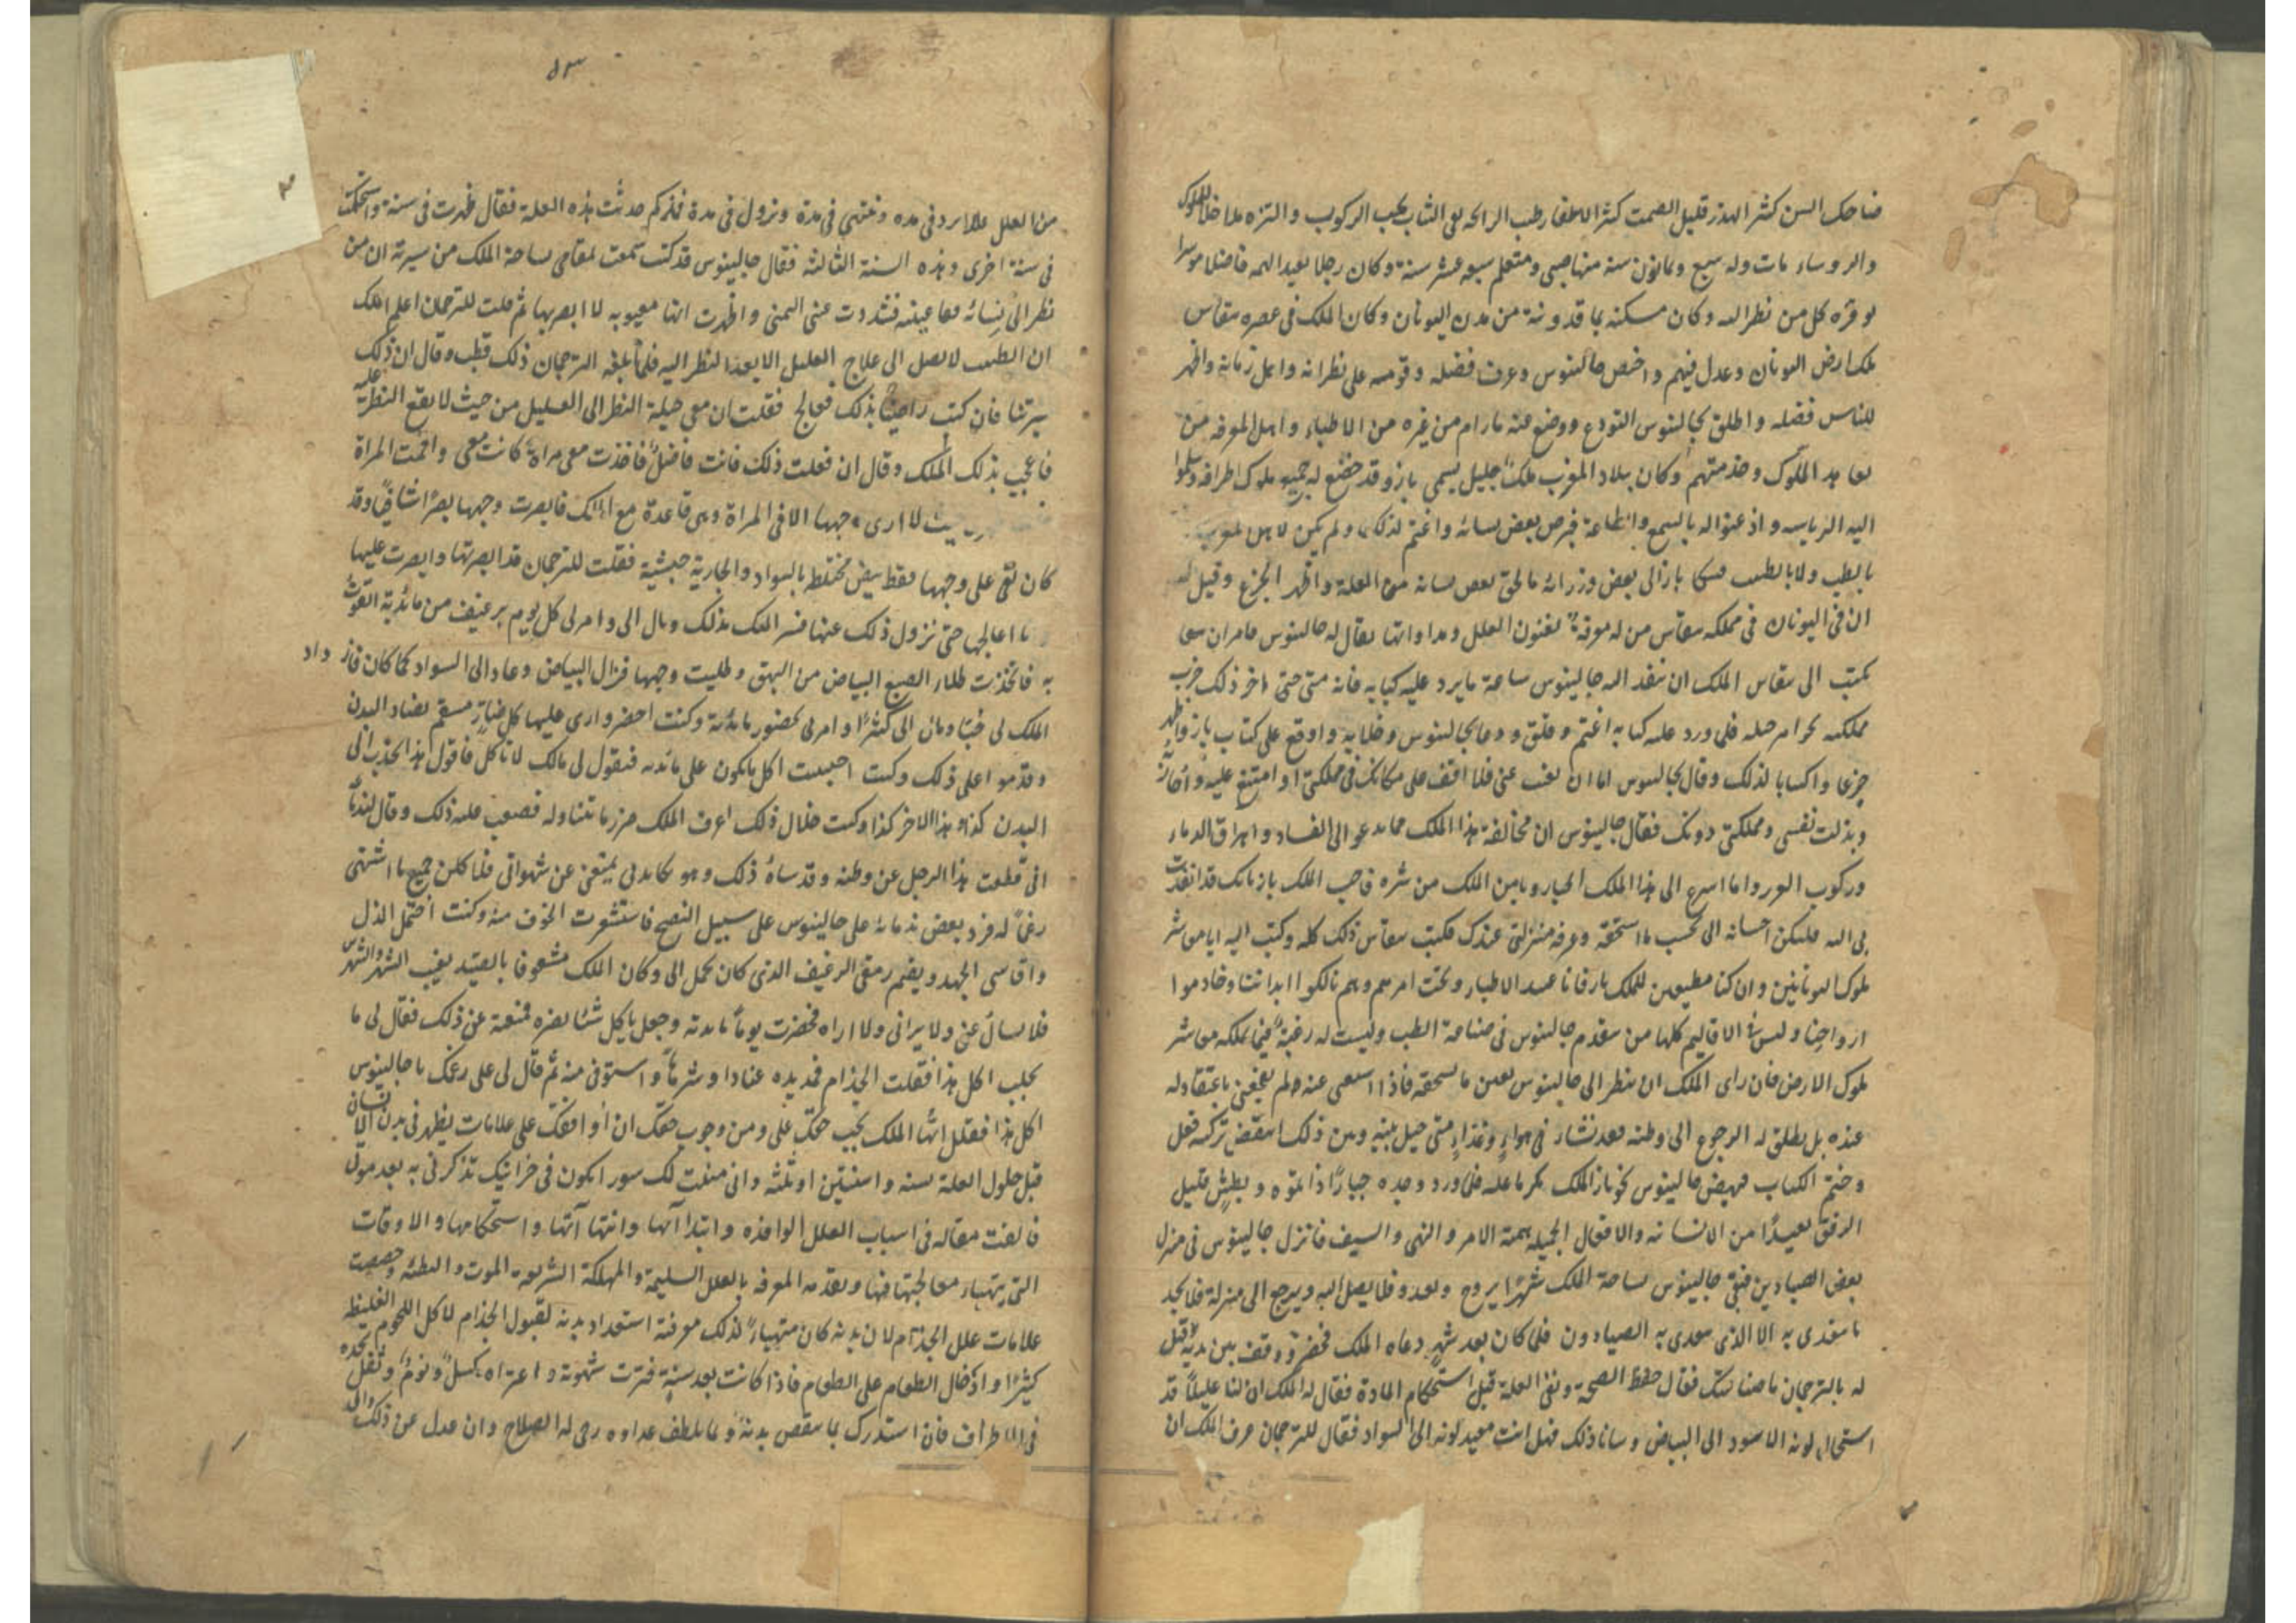 ضاحك السن كثير الهذر قليل الصمت كثير الاطفار طيب الرائحة نقي الثياب يحب الركوب والتنزه مداخلا للملوك
والروساء مات وله سبع وثمانون سنة منها صبي ومتعلم سبعه عشر سنة وكان رجلا بعيد الهمه فاضلا موسرا
يوقره كل من نظر اليه وكان مسكنه بماقدونية من مدن اليونان وكان الملك في عصره
ملك ارض اليونان وعدل فيهم واختص جالينوس وعرف فضله وقومه على نظرائه واهل زمانه واظهر
للناس فضله واطلق لجالينوس التودع ووضع عنه ما رام من غيره من الاطباء واهل المعرفه من
الملوك وخدمتهم وكان ببلاد المغرب ملك جليل يسمى باز وقد خضع له جميع ملوك اطرافه وسلموا
اليه الرياسه واذعنوا له بالسمع والطاعة فبرص بعض نسائه واغتم لذلك ولم يكن لاهل المغرب
بالطب ولا بالطبيب فشكا باز الى بعض وزرائه ما لحق بعض نسائه من العلة واظهر الجزع وقيل له
ان في اليونان في مملكه من له معرفة بفنون العلل ومداواتها يقال له جالينوس فامر ان
يكتب الى الملك ان ينفذ اليه جالينوس ساعة ما يرد عليه كتابه فانه متى اخر ذلك خرب
مملكته فلما ورد عليه كتابه اغتم وقلق ودعا بجالينوس وخلا به واوقع على كتاب باز واظهر
جزعا واكسابا لذلك وقال لجالينوس اما ان تغيب عني فلا اقف على مكانك في مملكتي او امتنع عليه
وبذلت نفسي ومملكتي دونك فقال جالينوس ان مخالفة هذا الملك مما يدعو الى الفساد واهراق الدماء
وركوب وانا اسرع الى هذا الملك الجبار ويامن الملك من شره فاجب الملك باز بانك قد انفذت
بي اليه فليكن احسانه الي بحسب ما استحقه وعرفه منزلتي عندك فكتب ذلك كله وكتب اليه انا معاشر
ملوك اليونانيين وان كنا مطيعين للملك باز فانا عبيد الاطباء وتحت امرهم وهم مالكوا ابداننا وخادموا
ارواحنا وليس في الاقاليم كلها من يتقدم جالينوس في صناعة الطب وليست له رغبة فيما يملكه معاشر
ملوك الارض فان راى الملك ان ينظر الى جالينوس بعين ما يستحقه فاذا استغنى عنه لم يفجعني باعتقاد له
عنده بل يطلق له الرجوع الى وطنه فقد نشاء في هواء وغذاء متى حيل بينه وبين ذلك انتقض تركيبه ففعل
وختم الكتاب فنهض جالينوس نحو باز الملك فلما ورد وجده جبارا ذا قوه وبطش قليل
الرفق بعيدا من الانسانيه والافعال الجميله همته الامر والنهي والسيف فانزل جالينوس في منزل
بعض الصيادين فبقي جالينوس بساحة الملك شهرا يروح ويغدو فلا يصل اليه ويرجع الى منزله فلا يجد
ما يتغذى به الا الذي يتغذى به الصيادون فلما كان بعد شهر دعاه الملك فحضر ووقف بين يديه وقيل
له بالترجمان ما صناعتك فقال حفظ الصحة ونفي العلة قبل استحكام المادة فقال له الملك ان لنا عليلا قد
استحال لونه الاسود الى البياض وساءنا ذلك فهل انت معيد لونه الى السواد فقال للترجمان عرف الملك ان
٥٣
من العلل عللا يرد في مده وتنتهي في مدة وتزول في مدة فمذ كم حدثت هذه العلة فقال ظهرت في سنة واستحكمت
في سنة اخرى وهذه السنة الثالثه فقال جالينوس قد كنت سمعت لمقامي بساحة الملك من سيرته ان من
نظر الى نسائه فشددت عيني اليمنى واظهرت انها معيوبه لا ابصر بها ثم قلت للترجمان اعلم الملك
ان الطبيب لا يصل الى علاج العليل الا بعد النظر اليه فلما بلغه الترجمان ذلك قطب وقال ان ذلك
سيرتنا فان كنت راضيا بذلك فعالج فقلت ان معي حيلة النظر الى العليل من حيث لا يقع النظر عليه
فاعجب بذلك الملك وقال ان فعلت ذلك فانت فاضل فاخذت معي مراة كانت معي واقمت المراة
لا ارى وجهها الا في المراة وهي قاعدة مع الملك فابصرت وجهها بصرا شافيا وقد
كان بقي على وجهها نقط بيض مختلط بالسواد والجارية حبشية فقلت للترجمان قد ابصرتها وابصرت عليها
انا اعالجها حتى تزول ذلك عنها فسر الملك بذلك ومال الي وامر لي كل يوم برغيف من مائدته اتقوت
به فاتخذت طلاء الصبغ البياض من البهق وطليت وجهها فزال البياض وعاد الى السواد كما كان فازداد
الملك لي حبا ومال الي كثيرا وامر لي بحضور مائدته وكنت احضر وارى عليها كل ضار مسقم يضاد البدن
وقدموا على ذلك وكنت اجيبت اكل ما يكون على مائدته فيقول لي مالك لا تاكل فاقول هذا يحدث في
البدن كذا وهذا الاخر كذا وكنت خلال ذلك اعرف الملك ضرر ما يتناوله فصعب عليه ذلك وقال لندمائه
اني قطعت هذا الرجل عن وطنه وقد ساءه ذلك وهو يكايدني يمنعني عن شهواتي فلما كلن جميع ما اشتهى
رغما له فرد بعض ندمائه على جالينوس على سبيل النصح فاستشعرت الخوف منه وكنت احتمل الذل
واقاسي الجهد ويقيم رمقي الرغيف الذي كان يحمل الي وكان الملك مشغوفا بالصيد يغيب الشهر والشهرين
فلا يسال عني ولا يراني ولا اراه فحضرت يوما مائدته وجعل ياكل شيئا يضره فمنعته عن ذلك فقال لي ما
يجلب اكل هذا فقلت الجذام فمد يده عنادا وشرها واستوفى منه ثم قال لي على رغمك يا جالينوس
اكل هذا فقلت ايها الملك يجب حقك علي ومن وجوب حقك ان اوافقك على علامات يظهر في بدن الانسان
قبل حلول العلة بسنه واسنتين او ثلثه واني منعت لك يكون في خزانتك تذكرني به بعد موتي
فالفت مقاله في اسباب العلل الوافده وابتداآتها وانتهاآتها واستحكامها والاوقات
التي يتهياء معالجتها فيها وبعد المعرفه بالعلل السليمة والمهلكة السريعه الموت والبطئه وخصصت
علامات علل الجذام لان بدنه كان متهياء لذلك معرفة استعداد بدنه لقبول الجذام لاكل اللحوم الغليظه
كثيرا وادخال الطعام على الطعام فاذا كانت بعد سنة فترت شهوته واعتراه كسل ونوم وثقل يجده
في الاطراف فان استدرك بما ينقص بدنه وبما يلطف غذاؤه رجي له الصلاح وان عدل عن ذلك والى